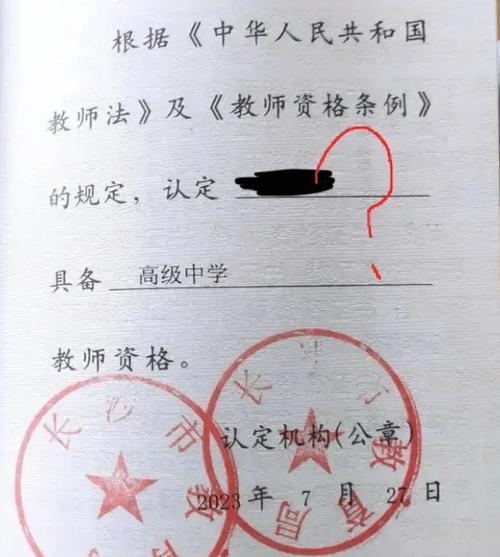 根据《中华人民共和国
教师法》及《教师资格条例》
的规定，认定
具备 高级中学
教师资格。
认定机构(公章)
2023 年 7 月 27 日
长沙市教
长 教育局